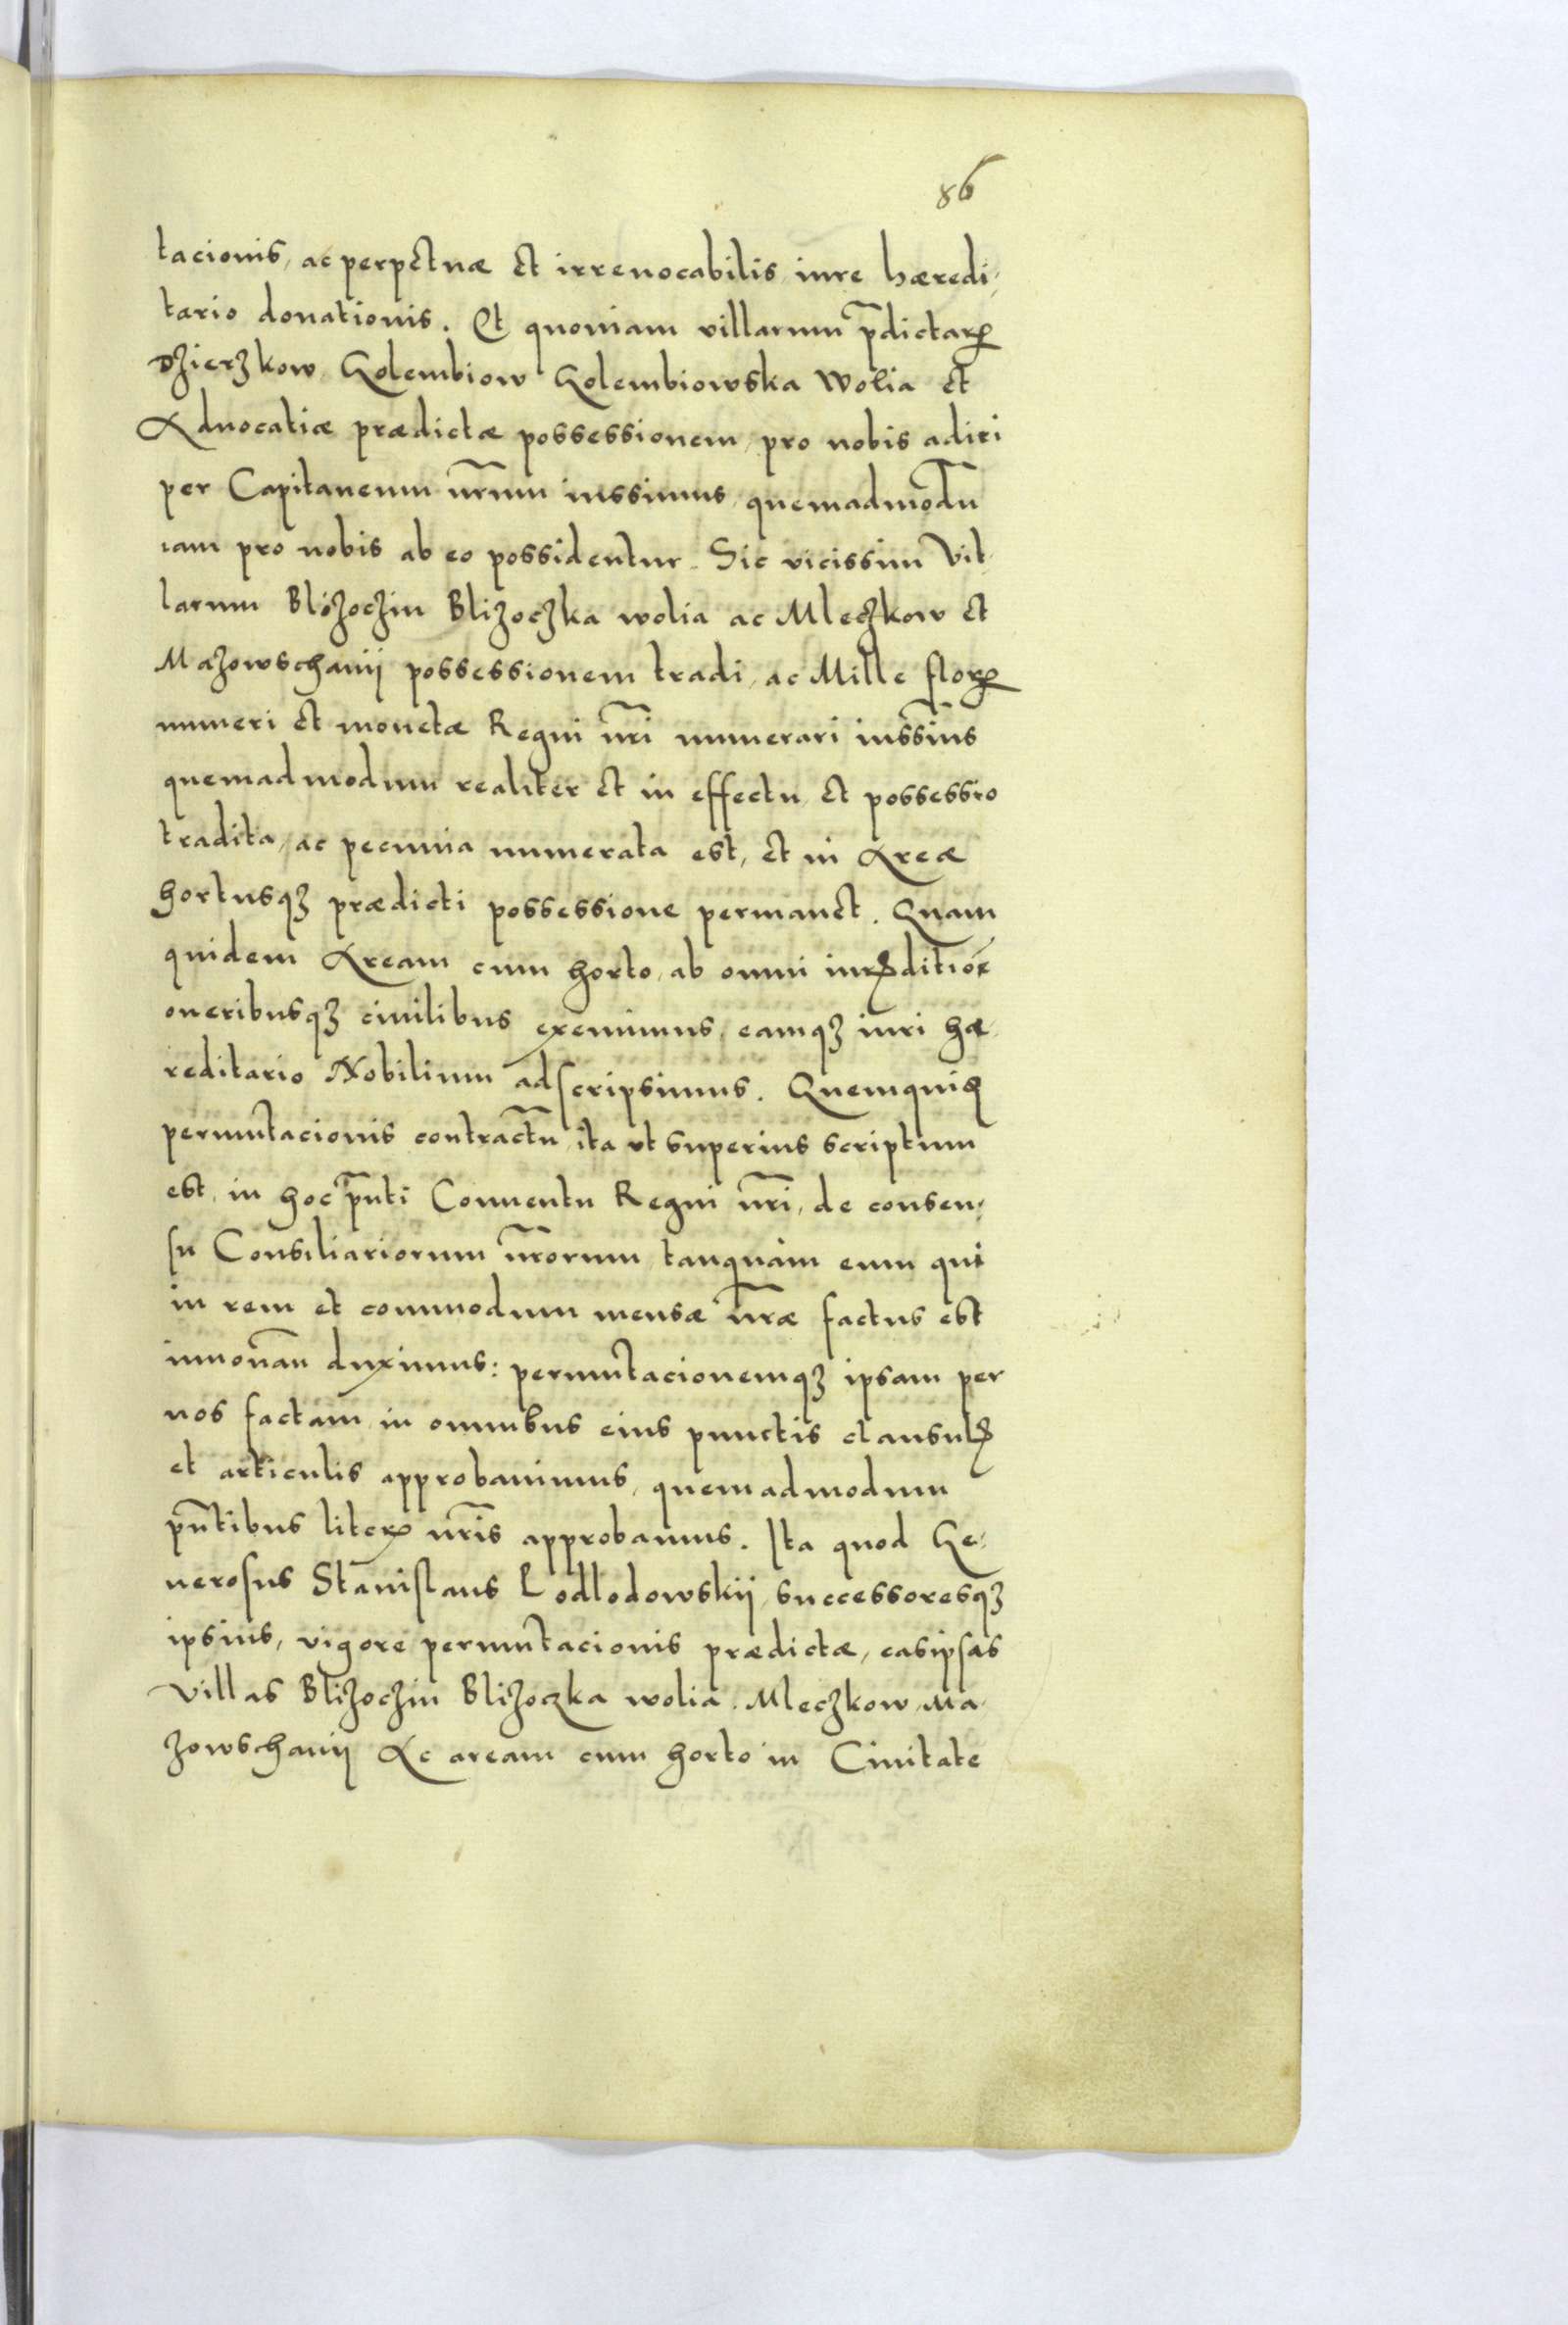 86
tacionis, ac perpetuæ et irreuocabilis iure hæredi,
tario donationis. Et quoniam villarum p̄dictarꝝ
Dzierzkow Golembiow Golembiowska Wolia et
Aduocatiæ prædictæ possessionem, pro nobis adiri
per Capitaneum nr̄um iussimus, quemadmodū
iam pro nobis ab eo possidentur. Sic vicissim Vil,
larum Blizoczin Blizoczka wolia ac Mleczkow et
Mazowschanij possessionem tradi, ac Mille florꝝ
numeri et monetæ Regni nr̄i numerari iussim̄s
quemadmodum realiter et in effectu et possessio
tradita, ac pecunia numerata est, et in Areæ
hortusqꝫ prædicti possessione permanet. Quam
quidem Aream cum horto, ab omni iurꝭditioe
oneribusqꝫ ciuilibus exemimus, eamqꝫ iuri hæ,
reditario Nobilium adscripsimus. Quemquiꝭ
permutacionis contractū ita vt superius scriptum
est, in hoc p̄nti Conuentu Regni nr̄i, de consen,
su Consiliariorum nr̄orum tanquam eum qui
in rem et commodum mensæ nr̄æ factus est
innouan̄ duximus: permutacionemqꝫ ipsam per
nos factam in omnibus eius punctis clausulꝭ
et articulis approbauimus, quemadmodum
pn̄tibus literꝭ nr̄is approbamus. Ita quod Ge,
nerosus Stanislaus Lodlodowskij successoresqꝫ
ipsius, vigore permutacionis prædictæ, easipsas
Villas Blizoczin Blizoczka wolia. Mleczkow Ma,
zowschanij Ac aream cum horto in Ciuitate